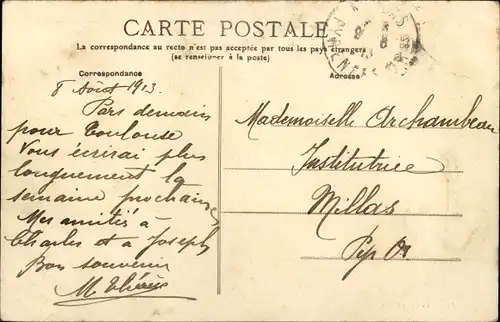 CARTE POSTALE
La correspondance au recto n'est pas acceptée par tous les pays étrangers
(se renseigner à la poste)
Correspondance
Adresse
8 Août 1913.
Pars demain
pour Toulouse
Vous écrirai plus
longuement la
semaine prochaine
Mes amitiés à
Charles et a Joseph
Bon souvenir
M
Mademoiselle Archambeau
Institutrice
Millas
Pyr Or.